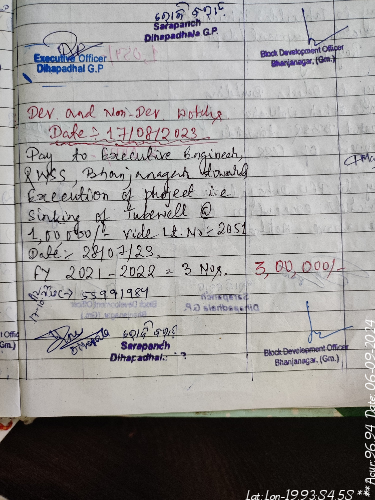 Sarapanch
Dihapadhala G.P.
Executive Officer
Dihapadhal G.P
Block Development Officer
Bhanjanagar, (Gm.)
Dev and Non-Dev
Date :- 17/08/2023
Pay to Executive Engineer,
RWSS Bhanjanagar towards
Execution of project i.e
Sinking of Tubewell @
1,00,000/- vide Lt. No:- 2051
Date:- 28/07/23.
FY 2021-2022 = 3 Nos. 3,00,000/-
53991984
Sarapanch
Dihapadhal
Block Development Officer
Bhanjanagar, (Gm.)
Lat:Lon-19.93:84.55
Date 06-09-2024